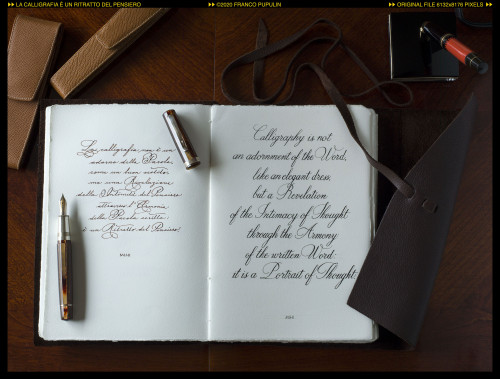 LA CALLIGRAFIA E UN RITRATTO DEL PENSIERO
©2020 FRANCO PUPULIN
ORIGINAL FILE 6132x8176 PIXELS
La calligrafia non è un
adorno della Parola,
come un buon vestito,
ma una Rivelazione
della Intimità del Pensiero
attraverso l'Armonia
della Parola scritta:
è un Ritratto del Pensiero.
Calligraphy is not
an adornment of the Word,
like an elegant dress,
but a Revelation
of the Intimacy of Thought
through the Armony
of the written Word:
it is a Portrait of Thought.